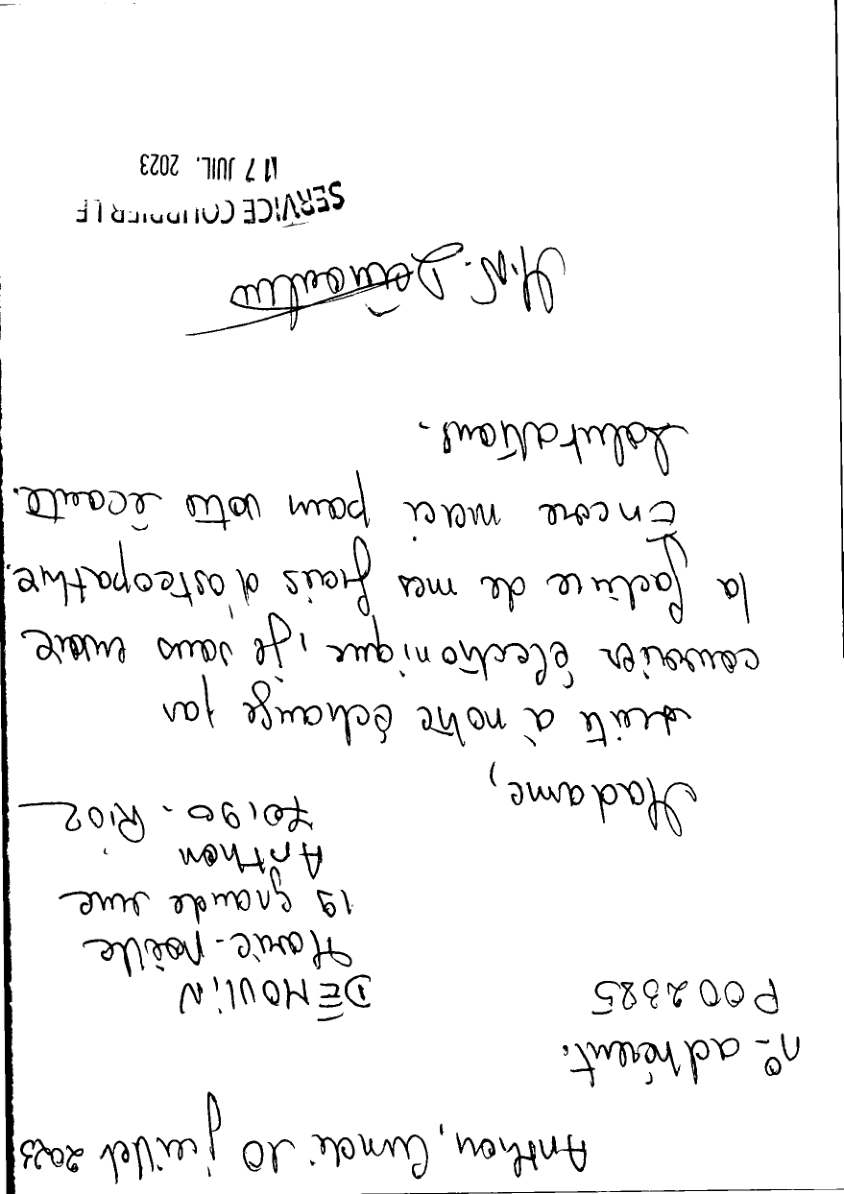 Anthon, lundi 10 juillet 2023
n° adhérent.
P002385
DÉMOULIN
Marie-Noëlle
19 grande rue
Anthon
70190 - Rioz
Madame,
suite à notre échange par
courrier électronique, je vous envoie
la facture de mes frais d'ostéopathie.
Encore merci pour votre écoute.
Salutations.
M.N. Démoulin
SERVICE COURRIER LE
17 JUIL. 2023